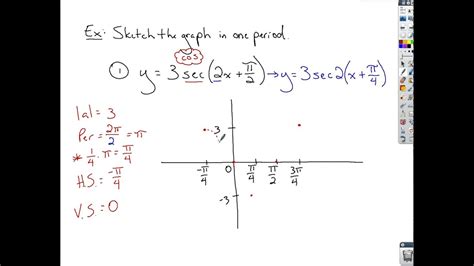 Ex: Sketch the graph in one period.
cos
① y = 3 sec(2x + π/2) → y = 3 sec 2(x + π/4)
|a| = 3
Per = 2π/2 = π
* 1/4 · π = π/4
H.S. = -π/4
V.S. = 0
3
-π/4 0 π/4 π/2 3π/4
-3